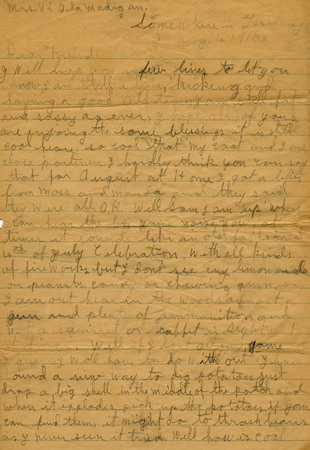 Mrs. Madigan.
Somewhere in Germany
Aug
Dear Friend
I Will drop you a few lines to let you
know I am still alive, kicking and
having a good old time and still fat
and sassy as ever, I
are enjoying the same blessings it is still
cool hear, so cool that my coat and I are
close partners I hardly think you can say
that for August at Home, I got a letter
from Moss and manda and they said
they were all OK. Well Sam I am up where I
can hear the big guns
times it sounds like an old fashioned
4th of July Celebration. With all kinds
of fire Works but I dont see eny lemonade
or peanuts candy or chewing gum, so
I carry out hear in the woods I got a
gun and plenty of ammunition and
squirrel or rabbit in sight
Well if I dont get game
Will have to do With out I have
found a new way to dig potatoes just
drop a big shell in the middle of the patch and
when it explodes pick up the potatoes if you
can find them it might do to thrash beans
as I never seen it tried Well how is coal